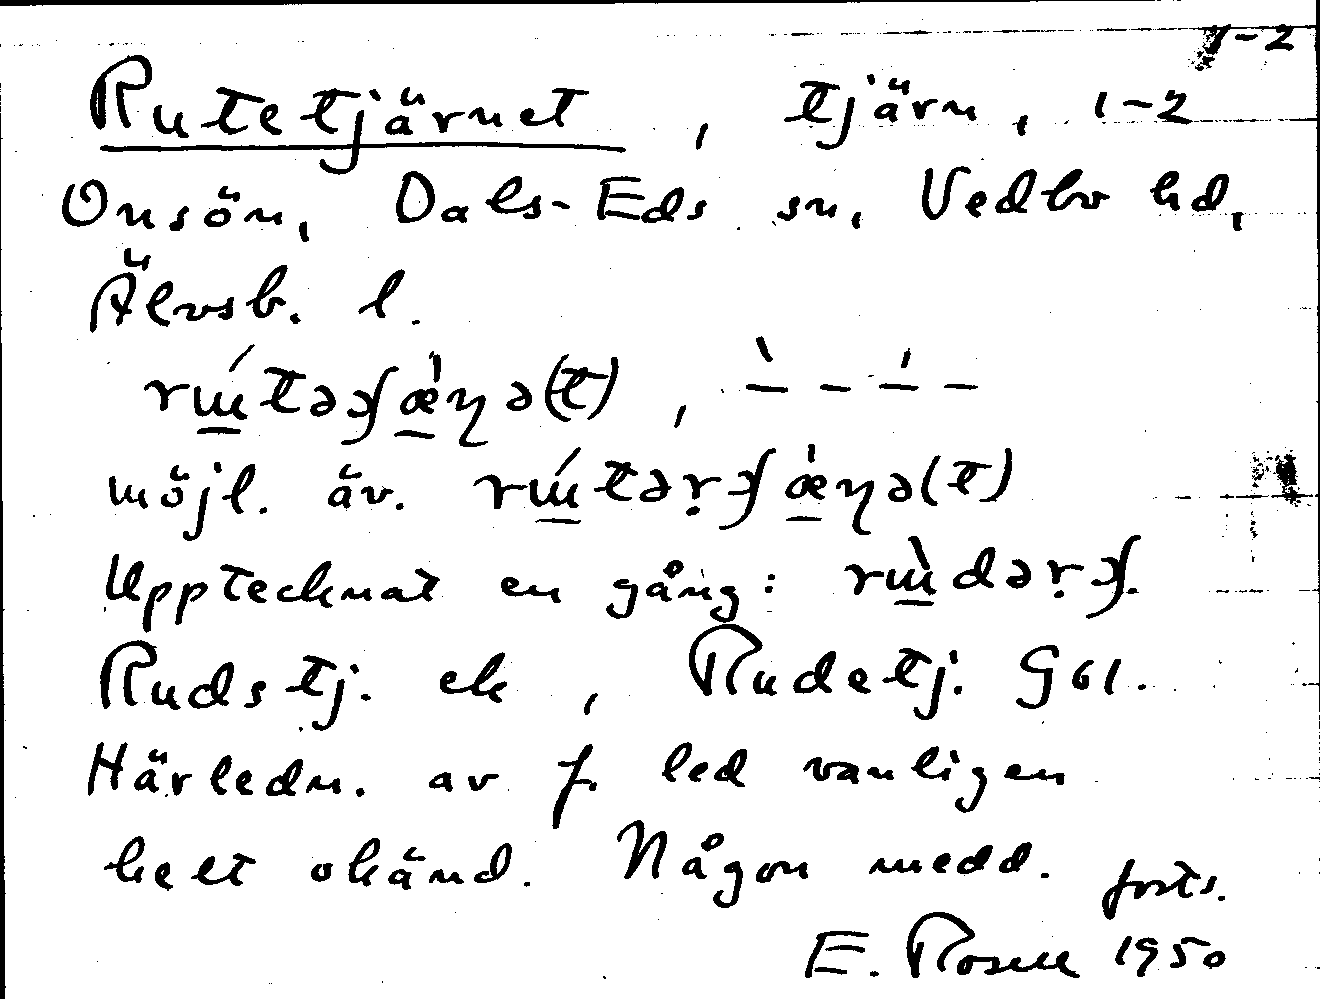 1-2
Rutetjärnet, tjärn, 1-2
Onsön, Dals-Eds sn, Vedbo hd,
Älvsb. l.
möjl. äv.
Upptecknat en gång:
Rudstj. ek, Rudetj. G61.
Härledn. av f. led vanligen
helt okänd. Någon medd. forts.
E. Rosell 1950